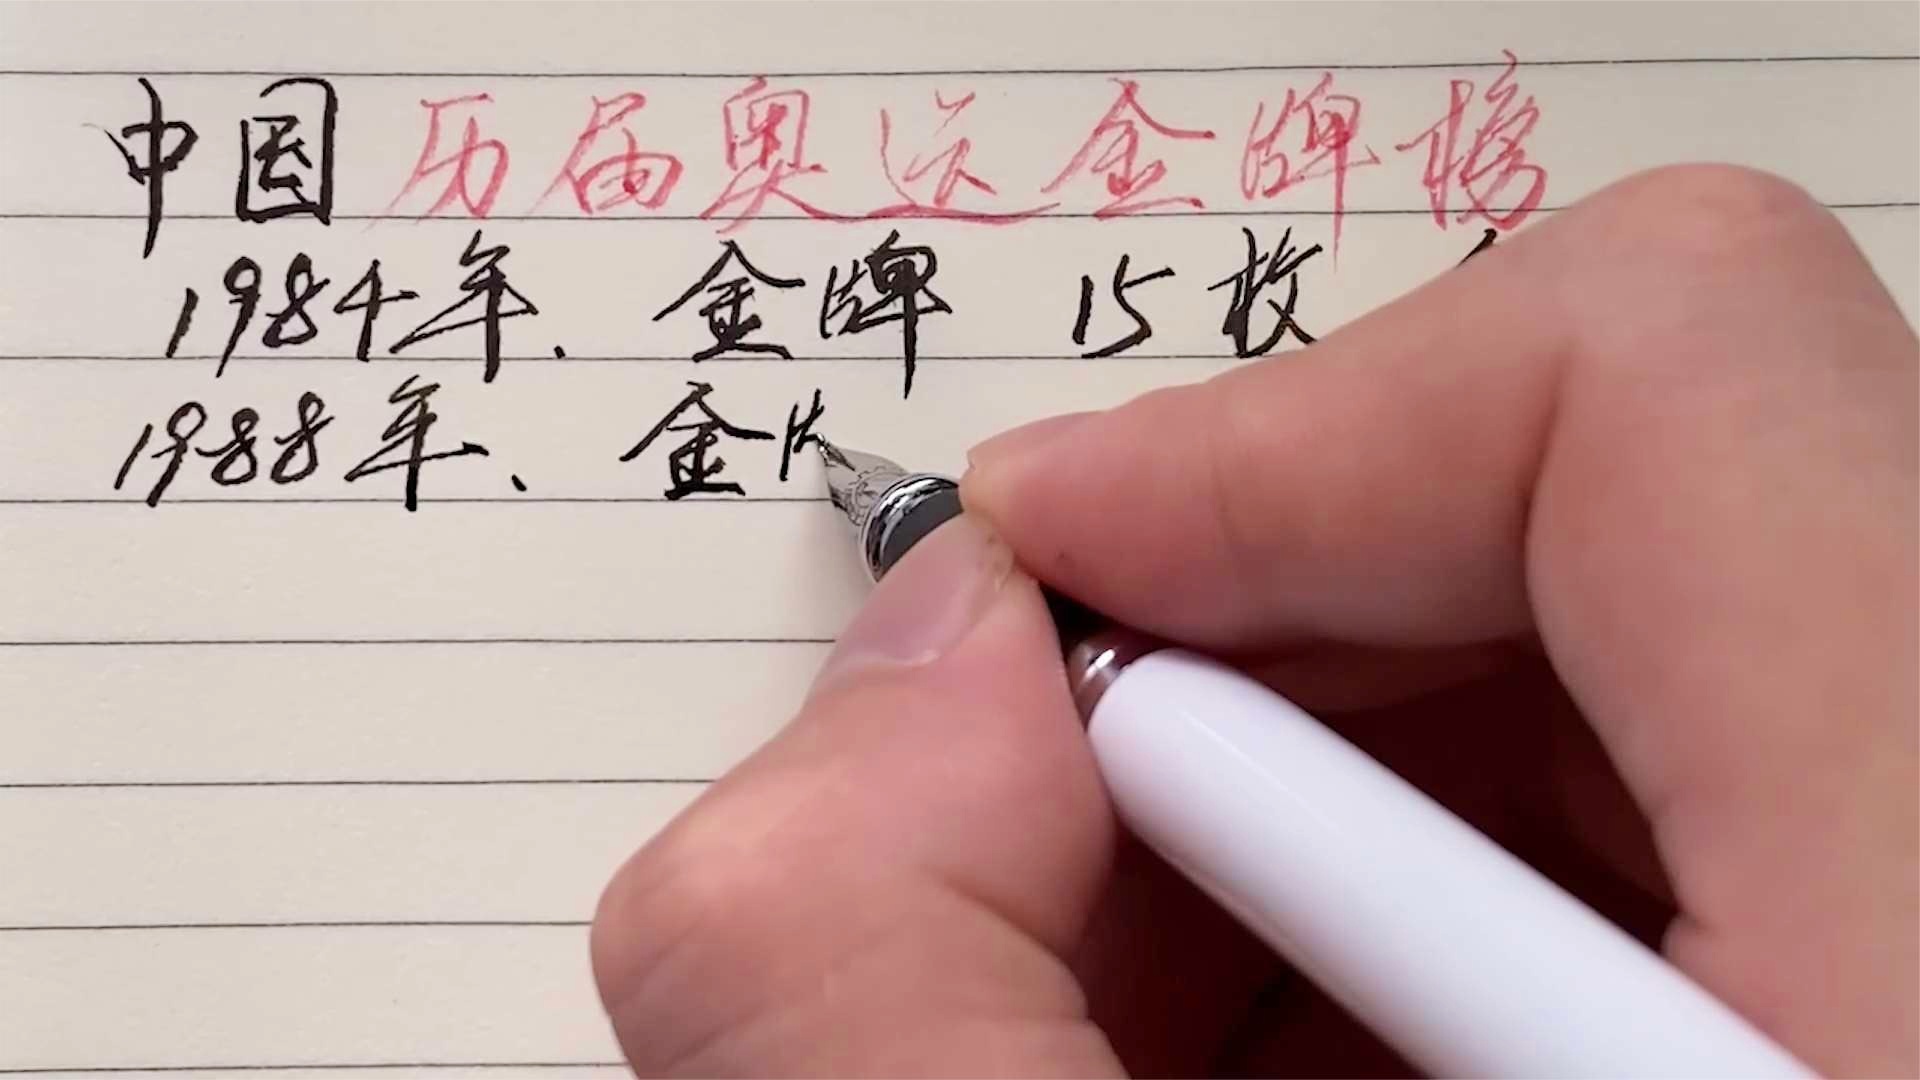 中国历届奥运金牌榜
1984年、金牌 15枚
1988年、金